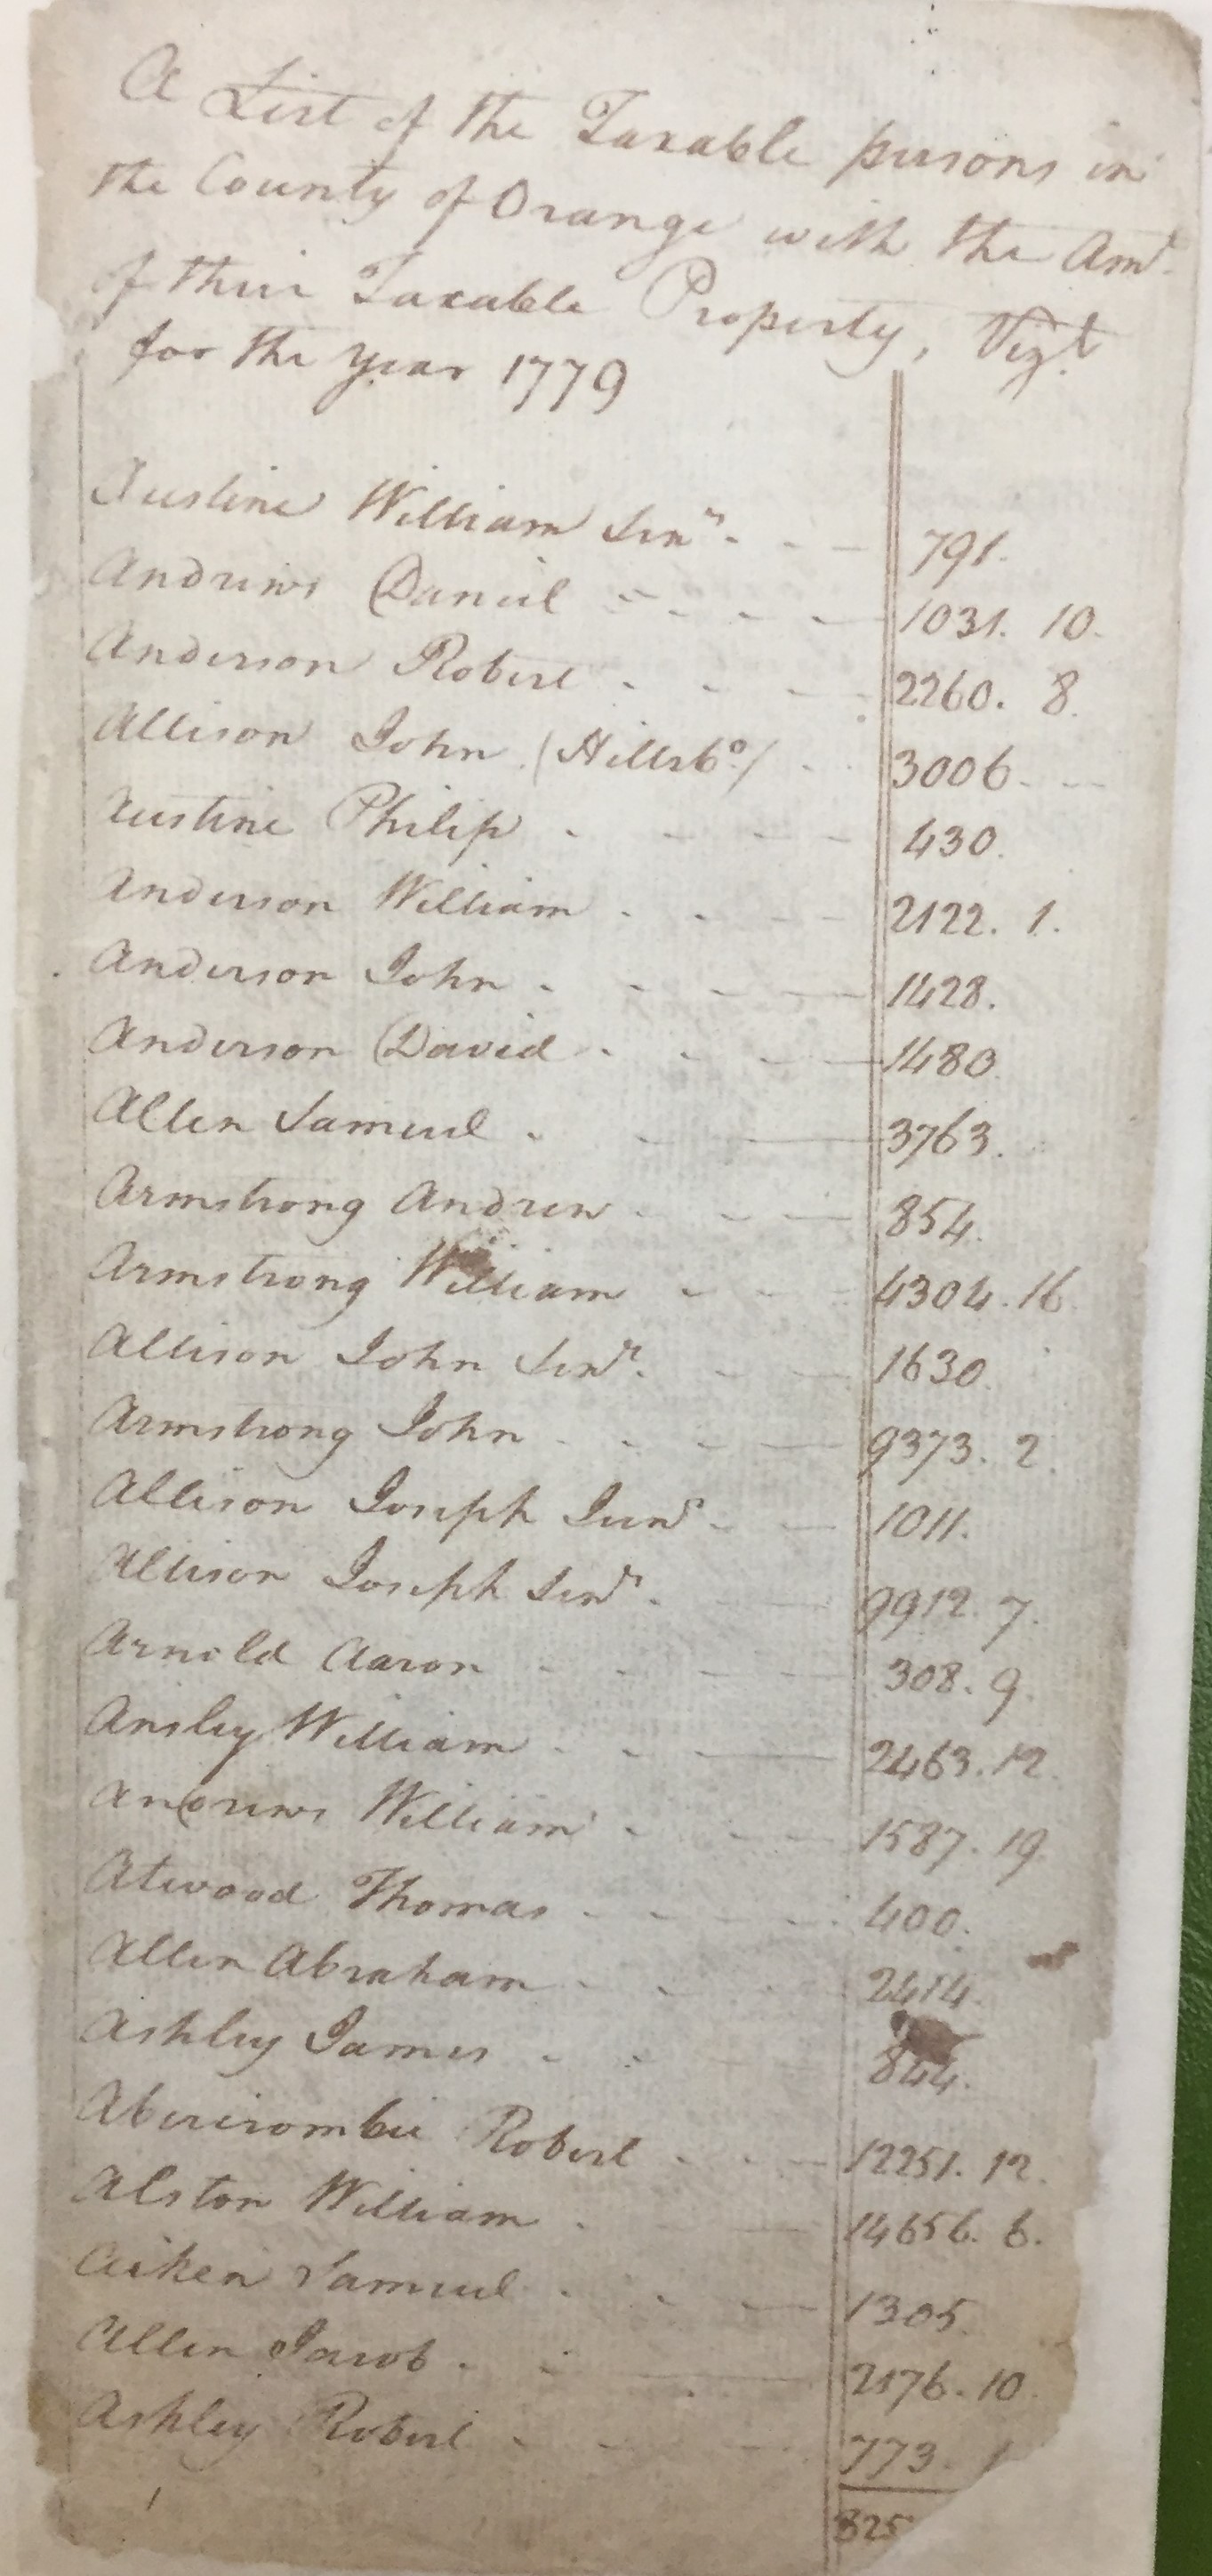 A List of the Taxable persons in
the County of Orange with the Amt.
of their Taxable Property, Vizt.
for the year 1779
Austine William Senr. 791.
Andrews Daniel 1031. 10.
Anderson Robert 2260. 8.
Allison John (Hillsbo.) 3006.
Austine Philip 430.
Anderson William 2122. 1.
Anderson John 1428.
Anderson David 1480
Allen Samuel 3763.
Armstrong Andrew 854.
Armstrong William 4304. 16
Allison John Senr. 1630.
Armstrong John 9373. 2.
Allison Joseph Junr. 1011.
Allison Joseph Senr. 9912. 7.
Arnold Aaron 308. 9.
Ansley William 2463. 12.
Andrews William 1587. 19
Atwood Thomas 400.
Allen Abraham 2414.
Ashley James 844.
Abercrombie Robert 12251. 12.
Alston William 14656. 6.
Aiken Samuel 1305.
Allen Jacob 2176. 10.
Ashley Robert 773. 1
825